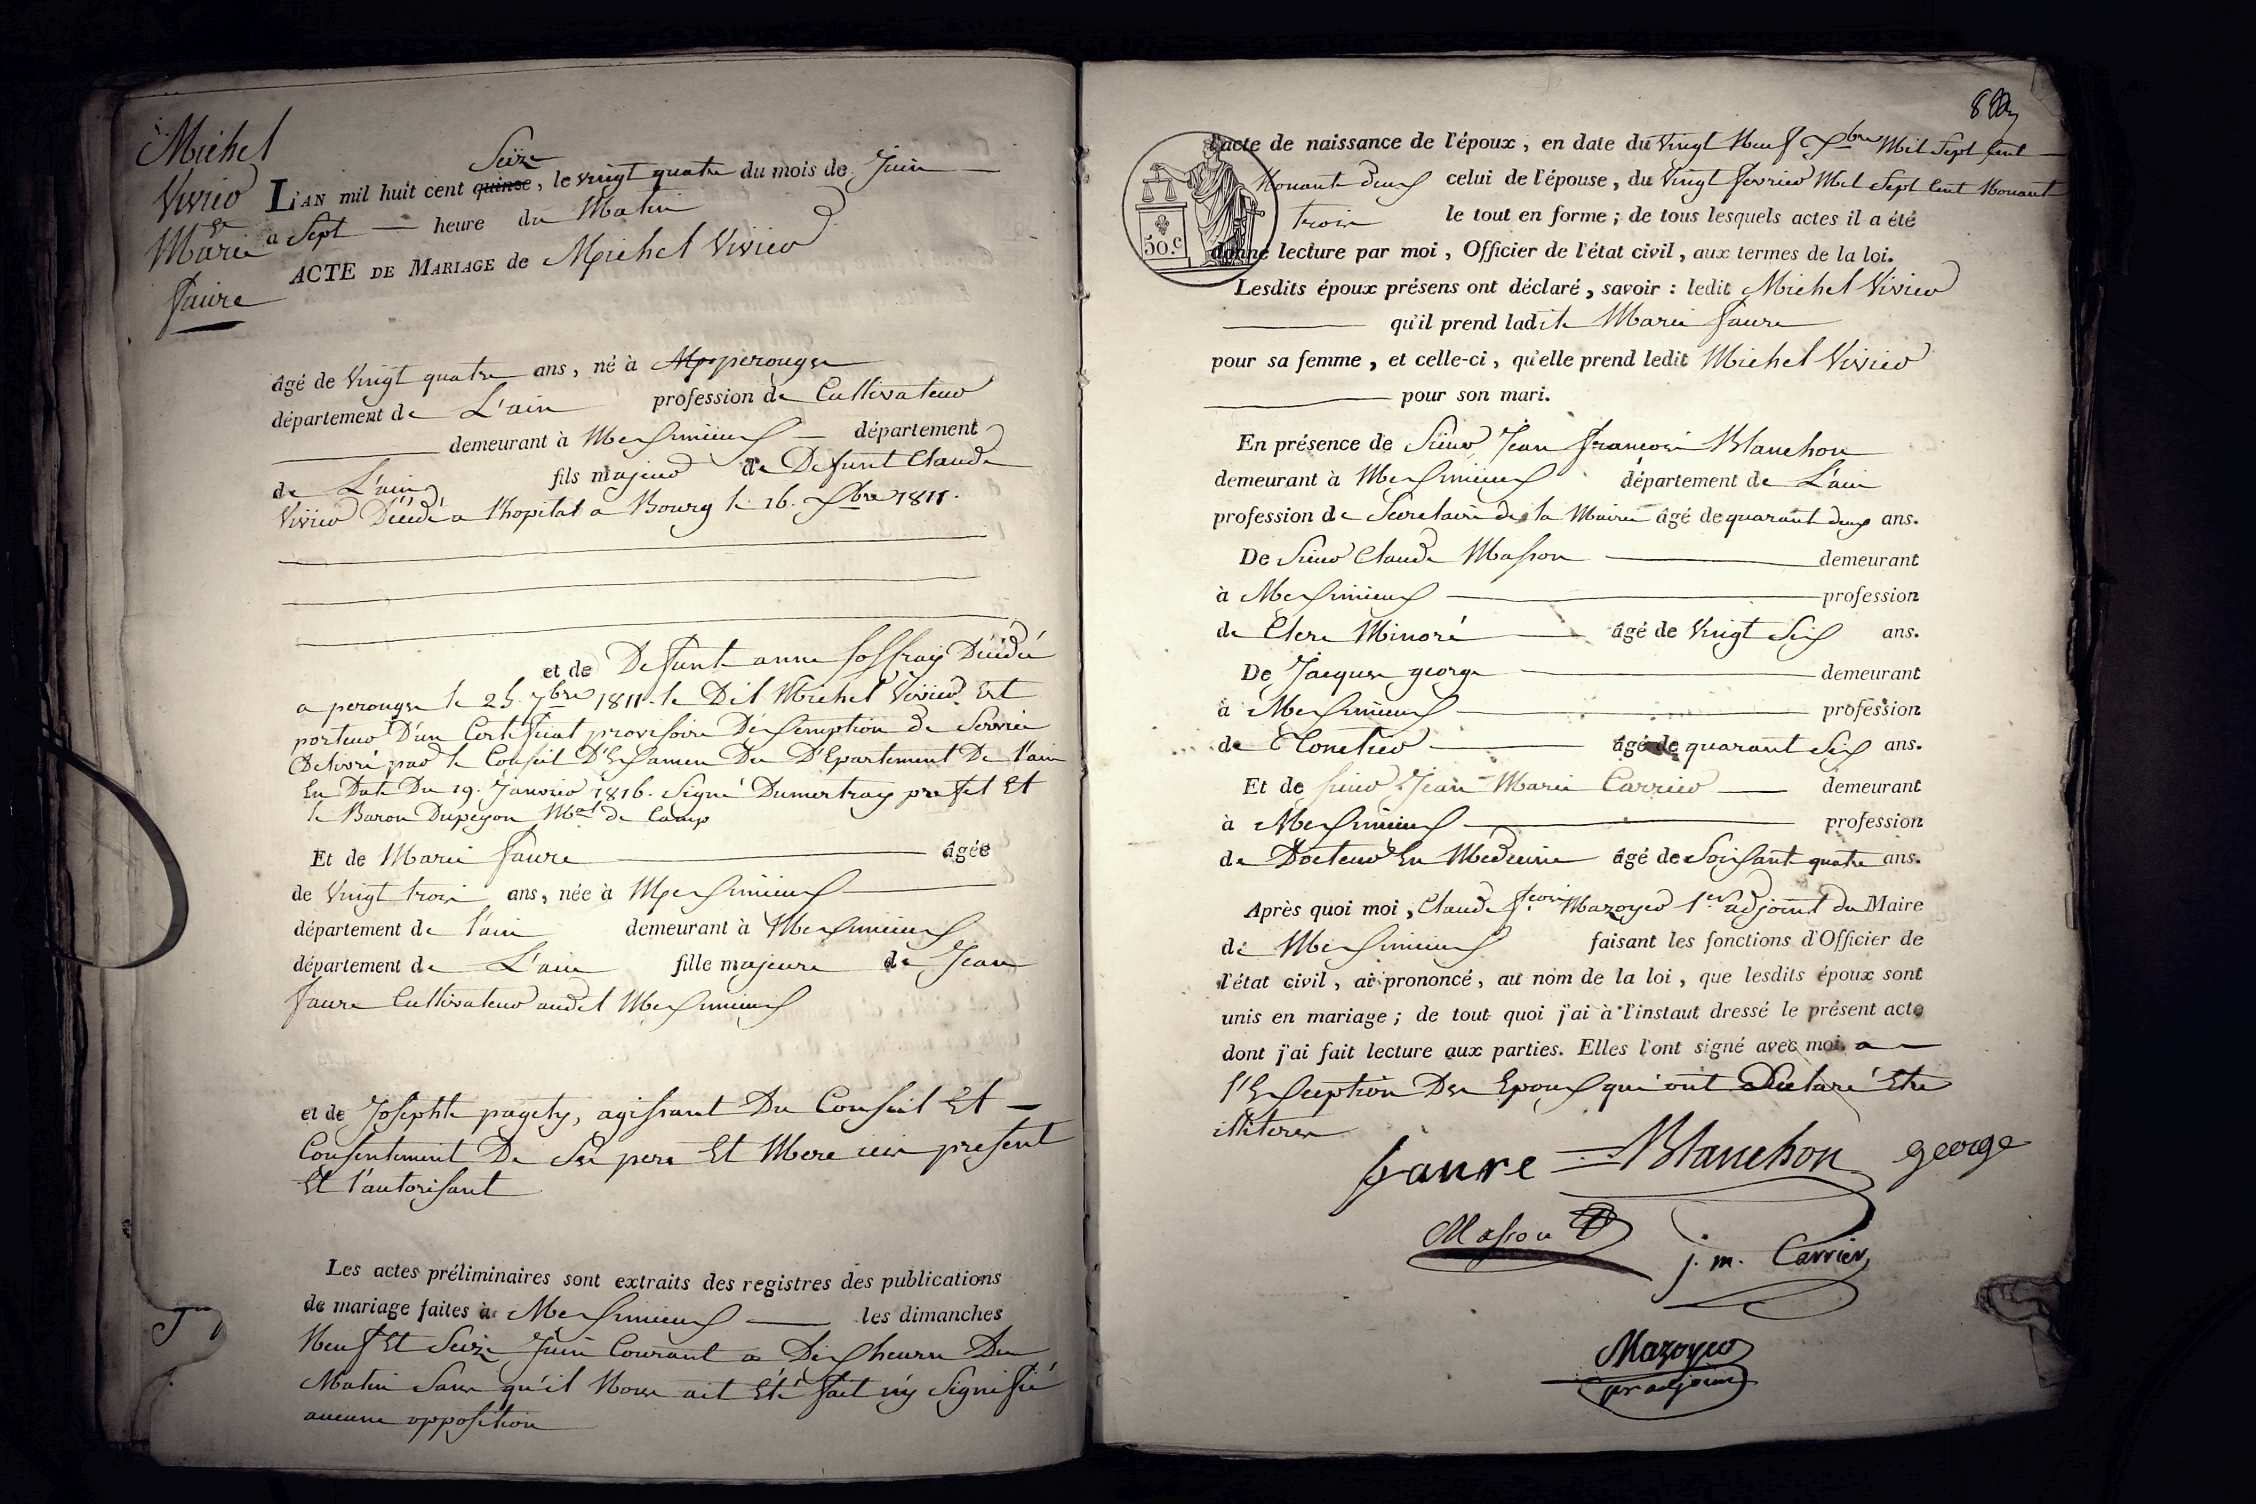 Michel
Vivier
et
Marie
faure
Seize
L'AN mil huit cent quinse, le vingt quatre du mois de Juin
a Sept heure du Matin
ACTE DE MARIAGE de Michel Vivier
âgé de Vingt quatre ans, né à perouges
département de L'ain profession de Cultivateur
demeurant à Meximieux département
de L'ain fils majeur de Defunt Claude
Vivier Décédé a l'hopital a Bourg le 16. Xbre 1811.
et de Defunte anne Décédée
a perouges le 25. 7bre 1811. le Dit Michel Vivier Est
porteur D'un Certificat provisoire D'éxemption de Service
Délivré par le Conseil D'Examen Du D'Epartement De l'ain
En Date Du 19. Janvier 1816. Signé Dumertray prefet Et
le Baron Dupeyon Mal de Camp
Et de Marie faure âgée
de Vingt trois ans, née à Meximieux
département de l'ain demeurant à Meximieux
département de L'ain fille majeure de Jean
faure Cultivateur audit Meximieux
et de Josephte pagety, agissant Du Conseil Et
Consentement De Ses pere Et Mere ici present
Et l'autorisant
Les actes préliminaires sont extraits des registres des publications
de mariage faites à Meximieux les dimanches
Neuf Et Seize Juin Courant a Dix heures Du
Matin Sans qu'il Nous ait Eté fait ny Signifié
aucune opposition
50.c
l'acte de naissance de l'époux, en date du Vingt Neuf Xbre Mil Sept Cent
Nonante deux celui de l'épouse, du Vingt fevrier Mil Sept Cent Nonant
trois le tout en forme; de tous lesquels actes il a été
donné lecture par moi, Officier de l'état civil, aux termes de la loi.
Lesdits époux présens ont déclaré, savoir: ledit Michel Vivier
qu'il prend ladite Marie faure
pour sa femme, et celle-ci, qu'elle prend ledit Michel Vivier
pour son mari.
En présence de Sieur Jean francois Blanchon
demeurant à Meximieux département de L'ain
profession de Secretaire de la Mairie âgé de quarante deux ans.
De Sieur Claude Masson demeurant
à Meximieux profession
de Clerc Minoré âgé de Vingt Six ans.
De Jacques george demeurant
à Meximieux profession
de Tonelier âgé de quarant Six ans.
Et de Sieur Jean Marie Carrier demeurant
à Meximieux profession
de Docteur En Medecine âgé de Soixant quatre ans.
Après quoi moi, Claude fcois Mazoyer 1er adjoint du Maire
de Meximieux faisant les fonctions d'Officier de
l'état civil, ai prononcé, au nom de la loi, que lesdits époux sont
unis en mariage; de tout quoi j'ai à l'instaut dressé le présent acte
dont j'ai fait lecture aux parties. Elles l'ont signé avec moi a
l'Exception Des Epoux qui ont Declaré Etre
illiteres
faure Blanchon george
Masson j. m. Carrier
Mazoyer
per adjoint